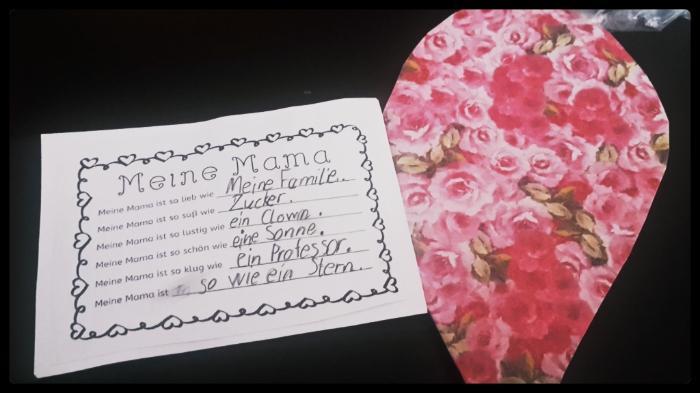 Meine Mama
Meine Mama ist so lieb wie Meine Familie.
Meine Mama ist so süß wie Zucker.
Meine Mama ist so lustig wie ein Clown.
Meine Mama ist so schön wie eine Sonne.
Meine Mama ist so klug wie ein Professor.
Meine Mama ist so wie ein Stern.